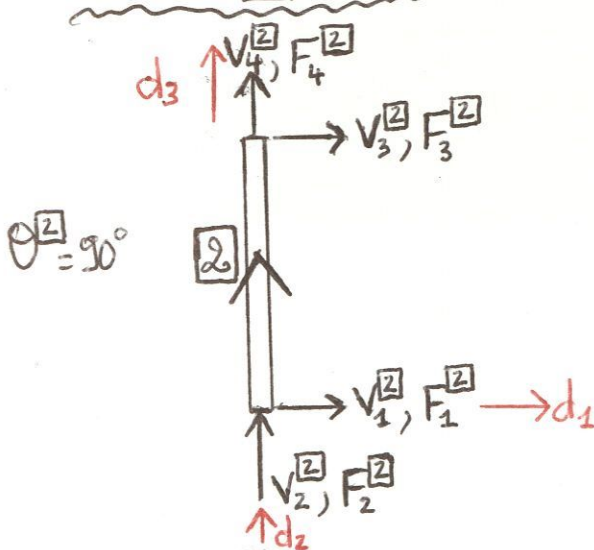 V₄^[2], F₄^[2]
d₃
V₃^[2], F₃^[2]
θ^[2] = 90°
2
V₁^[2], F₁^[2] → d₁
V₂^[2], F₂^[2]
↑ d₂